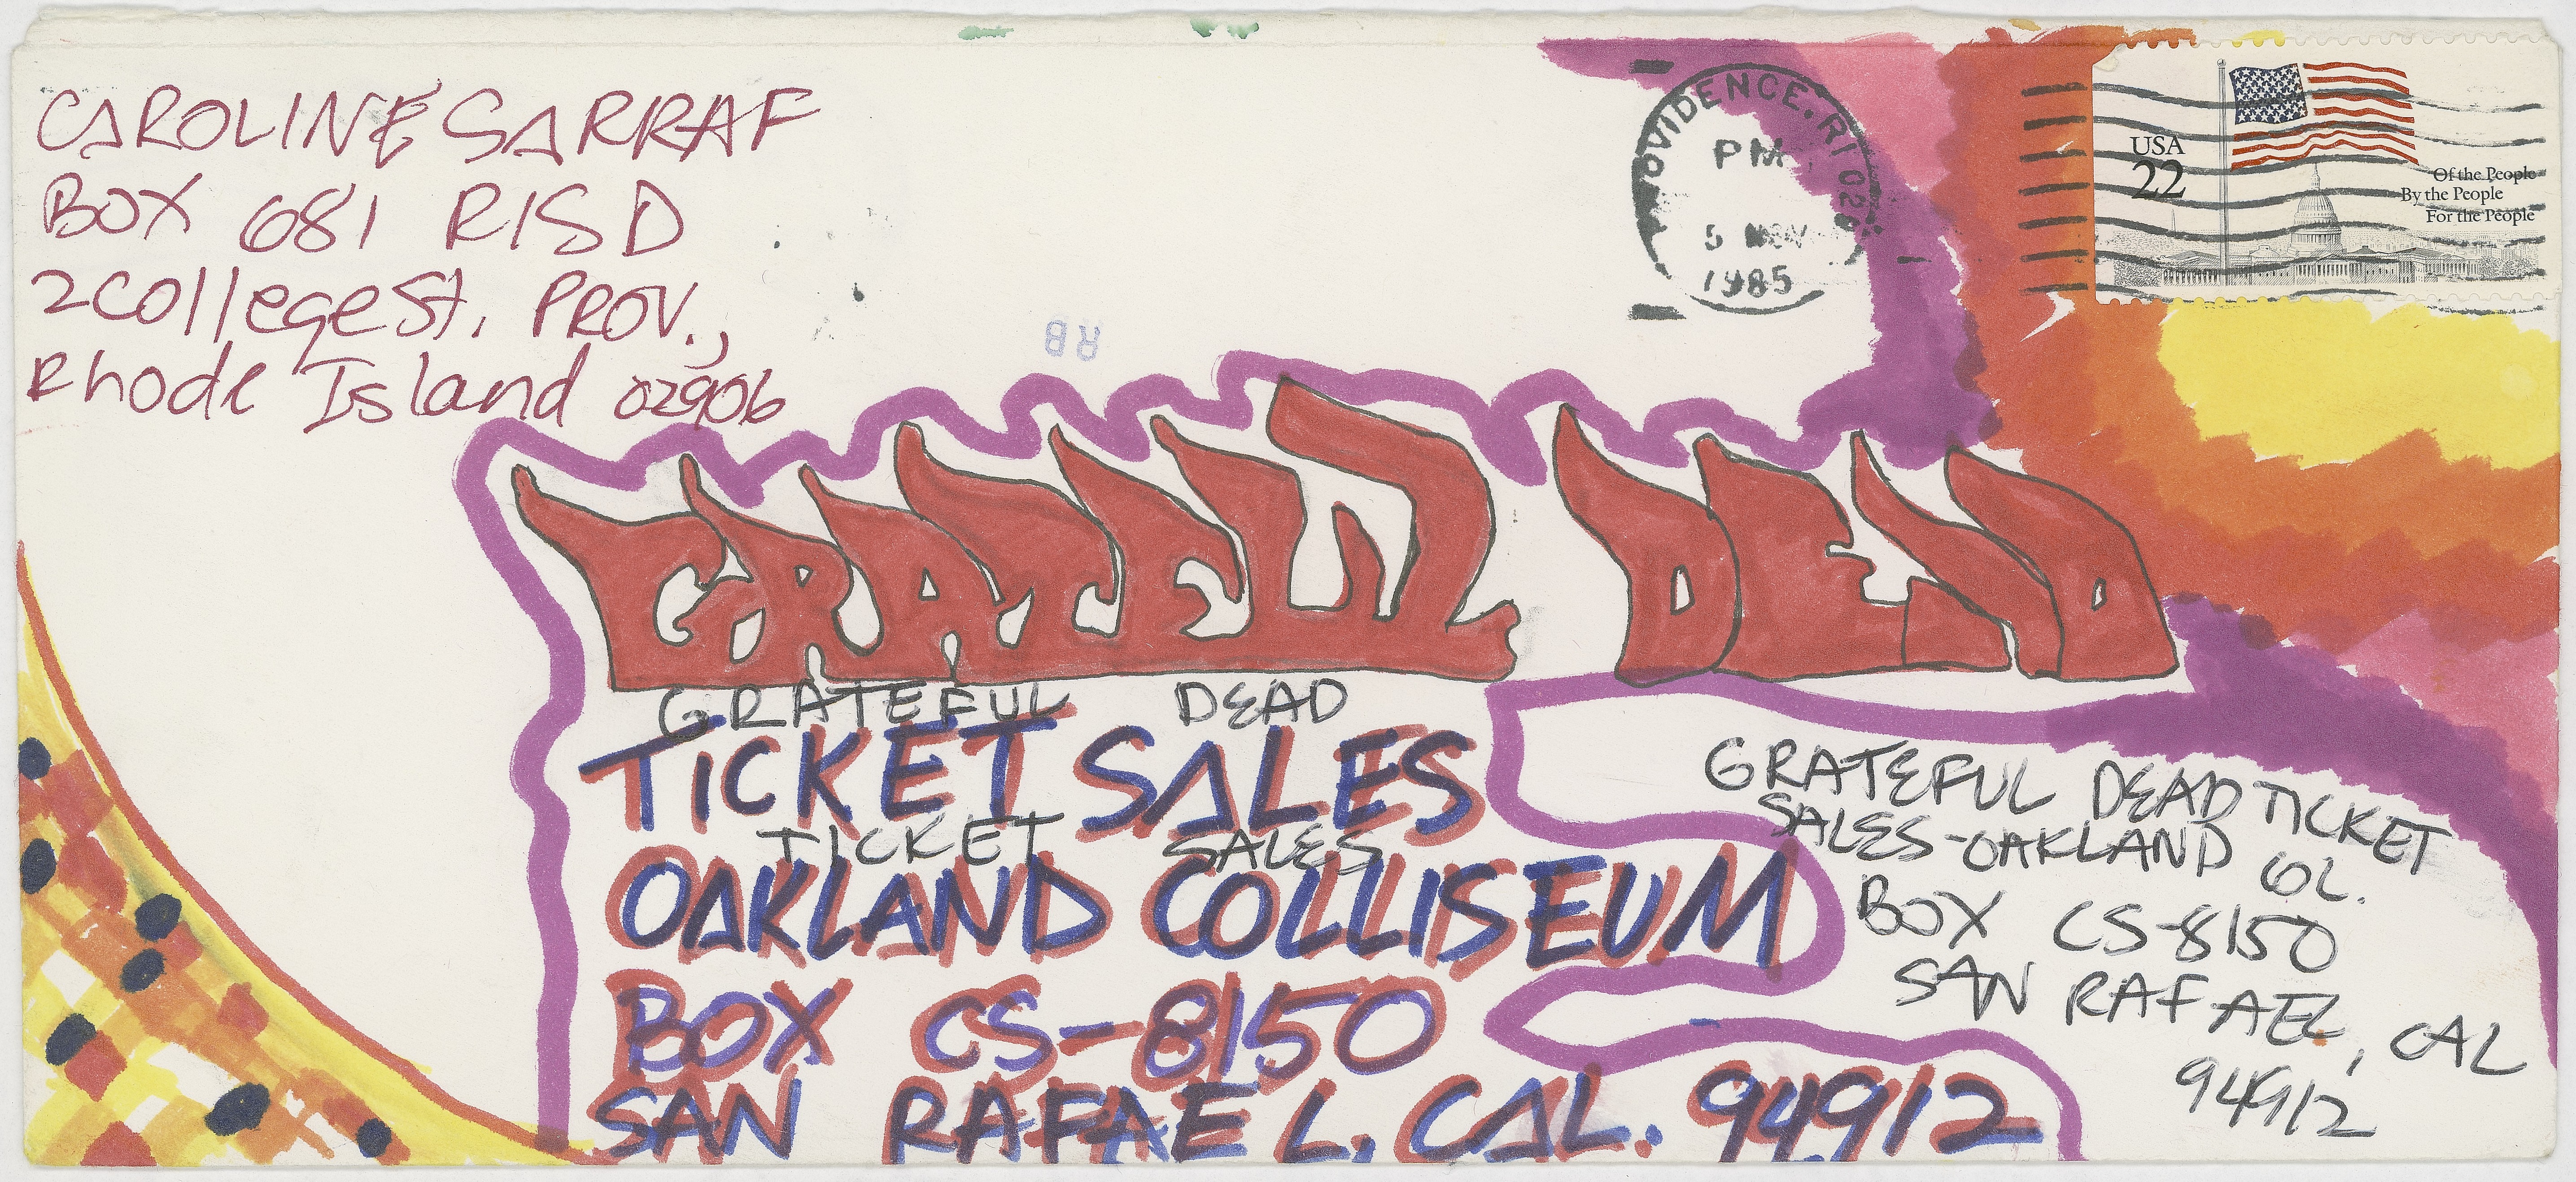 CAROLINE SARRAF
BOX 681 RISD
2 College St. PROV.,
Rhode Island 02906
OVIDENCE, RI 02
PM
5 NOV
1985
USA
22
Of the People
By the People
For the People
RB
GRATEFUL DEAD
GRATEFUL DEAD
TICKET SALES
TICKET SALES
OAKLAND COLLISEUM
BOX CS-8150
SAN RAFAEL, CAL. 94912
GRATEFUL DEAD TICKET
SALES-OAKLAND COL.
BOX CS-8150
SAN RAFAEL, CAL
94912